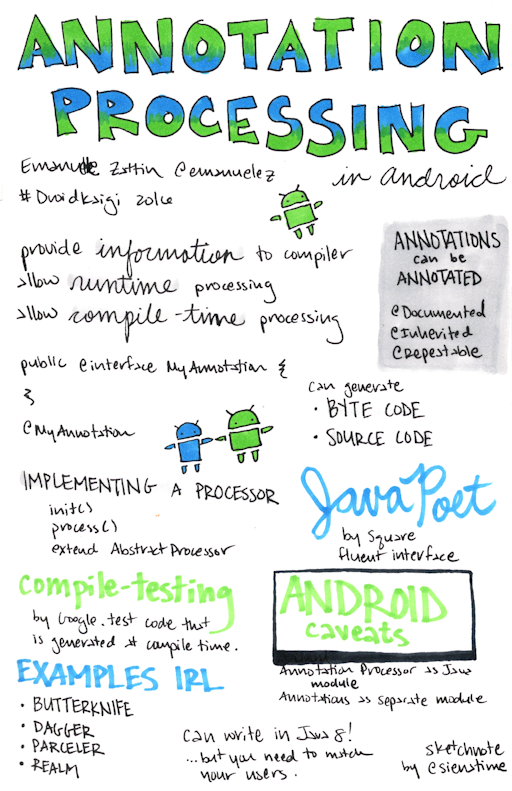 ANNOTATION
PROCESSING
in android
Emanuele Zattin @emanuelez
#DroidKaigi 2016
provide information to compiler
allow runtime processing
allow compile-time processing
ANNOTATIONS
can be
ANNOTATED
@Documented
@Inherited
@Repeatable
public @interface MyAnnotation {
}
@MyAnnotation
can generate
• BYTE CODE
• SOURCE CODE
IMPLEMENTING A PROCESSOR
init()
process()
extend AbstractProcessor
JavaPoet
by Square
fluent interface
compile-testing
by Google. test code that
is generated at compile time.
ANDROID
caveats
Annotation Processor as Java
module
Annotations as separate module
EXAMPLES IRL
• BUTTERKNIFE
• DAGGER
• PARCELER
• REALM
can write in Java 8!
...but you need to match
your users.
sketchnote
by @sienatime